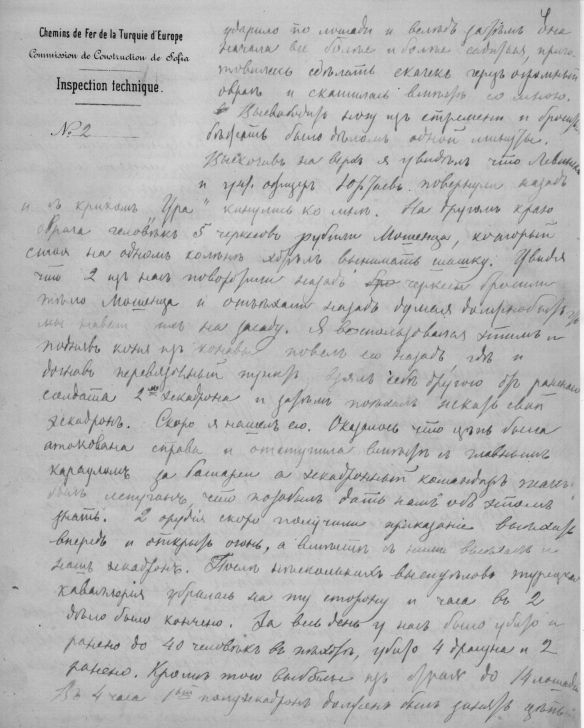 Chemins de Fer de la Turquie d'Europe
Commission de Construction de Sofia
Inspection technique.
№ 2
ударило по лошади и вслѣдъ затѣмъ она
начала все болѣе и болѣе садиться, приго
товилась сдѣлать скачекъ черезъ огромный
оврагъ и скатилась вмѣстѣ со мною.
Высвободить ногу изъ стремени и
бѣжать было дѣломъ одной минуты.
Выскочивъ на верхъ я увидѣлъ что
и унт. офицеръ повернули назадъ
и съ крикомъ „Ура" кинулись ко мнѣ. На другомъ краю
оврага человѣкъ 5 черкесовъ рубили Мошенца, который
стоя на одномъ колѣнѣ хотѣлъ вынимать шашку. Увидя
что 2 изъ насъ поворотили назадъ черкесы бросили
тѣло Мошенца и отъѣхали назадъ думая
мы навели ихъ на засаду. Я воспользовался этимъ и
поднявъ коня изъ канавы повелъ его назадъ гдѣ и
перевязочный пунктъ взялъ себѣ другого отъ раненаго
солдата 2го эскадрона и затѣмъ поѣхалъ искать свой
эскадронъ. Скоро я нашелъ его. Оказалось что цѣпь была
атакована справа и отступила вмѣстѣ съ главнымъ
карауломъ за батареи а эскадронный командиръ
былъ испуганъ что позабылъ дать намъ объ этомъ
знать. 2 орудія скоро получили приказаніе выѣхать
впередъ и открыть огонь, а вмѣстѣ съ ними выѣхалъ и
нашъ эскадронъ. Послѣ нѣсколькихъ выстрѣловъ турецкая
кавалерія убралась на ту сторону и часа въ 2
дѣло было кончено. За весь день у насъ было убито и
ранено до 40 человѣкъ въ пѣхотѣ, убито 4 драгуна и 2
ранено. Кромѣ того выбыло изъ строя до 14 лошадей
Въ 4 часа 1ый полуэскадронъ долженъ былъ занять цѣпь